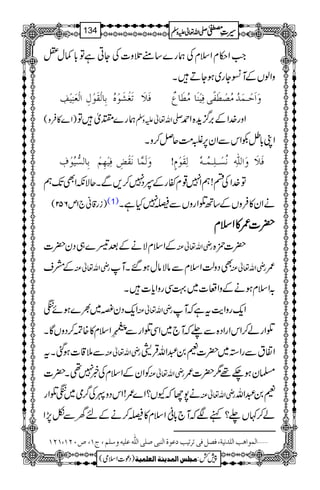 سیرتِ مصطفیٰ صلی اللہ تعالیٰ علیہ وسلم
134
جب احکام اسلام کی ہمارے سامنے تلاوت کی جاتی ہے تو با کمال عقل
والوں کے آنسو جاری ہو جاتے ہیں۔
وَاَحْمَدُ مُصْطَفًی فِیْنَا مُطَاعٌ فَلَا تَغْشَوْهُ بِالْقَوْلِ الْعَنِیْفِ
اور خدا کے برگزیدہ احمد صلی اللہ تعالیٰ علیہ وسلم ہمارے مقتدیٰ ہیں تو (اے کافرو)
اپنی باطل بکواس سے ان پر غلبہ مت حاصل کرو۔
فَلَا وَاللّٰهِ نُسْلِمُهٗ لِقَوْمٍ! وَلَمَّا نَقْضِ فِیْهِمْ بِالسُّیُوْفِ
تو خدا کی قسم! ہم انہیں قوم کفار کے سپرد نہیں کریں گے۔ حالانکہ ابھی تک ہم
نے ان کافروں کے ساتھ تلواروں سے فیصلہ نہیں کیا ہے۔(1) (زرقانی ج۱ ص۲۵۶)
حضرت عمر کا اسلام
حضرت حمزہ رضی اللہ تعالیٰ عنہ کے اسلام لانے کے بعد تیسرے ہی دن حضرت
عمر رضی اللہ تعالیٰ عنہ بھی دولت اسلام سے مالا مال ہو گئے۔ آپ رضی اللہ تعالیٰ عنہ کے مشرف
بہ اسلام ہونے کے واقعات میں بہت سی روایات ہیں۔
ایک روایت یہ ہے کہ آپ رضی اللہ تعالیٰ عنہ ایک دن غصہ میں بھرے ہوئے ننگی
تلوار لے کر اس ارادہ سے چلے کہ آج میں اسی تلوار سے پیغمبر اسلام کا خاتمہ کر دوں گا۔
اتفاق سے راستہ میں حضرت نعیم بن عبداللہ قریشی رضی اللہ تعالیٰ عنہ سے ملاقات ہو گئی۔ یہ
مسلمان ہو چکے تھے مگر حضرت عمر رضی اللہ تعالیٰ عنہ کو ان کے اسلام کی خبر نہیں تھی۔ حضرت
نعیم بن عبداللہ رضی اللہ تعالیٰ عنہ نے پوچھا کہ کیوں؟ اے عمر! اس دوپہر کی گرمی میں ننگی تلوار
لے کر کہاں چلے؟ کہنے لگے کہ آج بانیٔ اسلام کا فیصلہ کرنے کے لئے گھر سے نکل پڑا
......المواهب اللدنية، فصل فی ترتیب دعوة النبی صلی الله علیه وسلم، ج۱، ص۱۲۰،۱۲۱
پیش کش: مجلس المدينة العلمية (دعوتِ اسلامی)